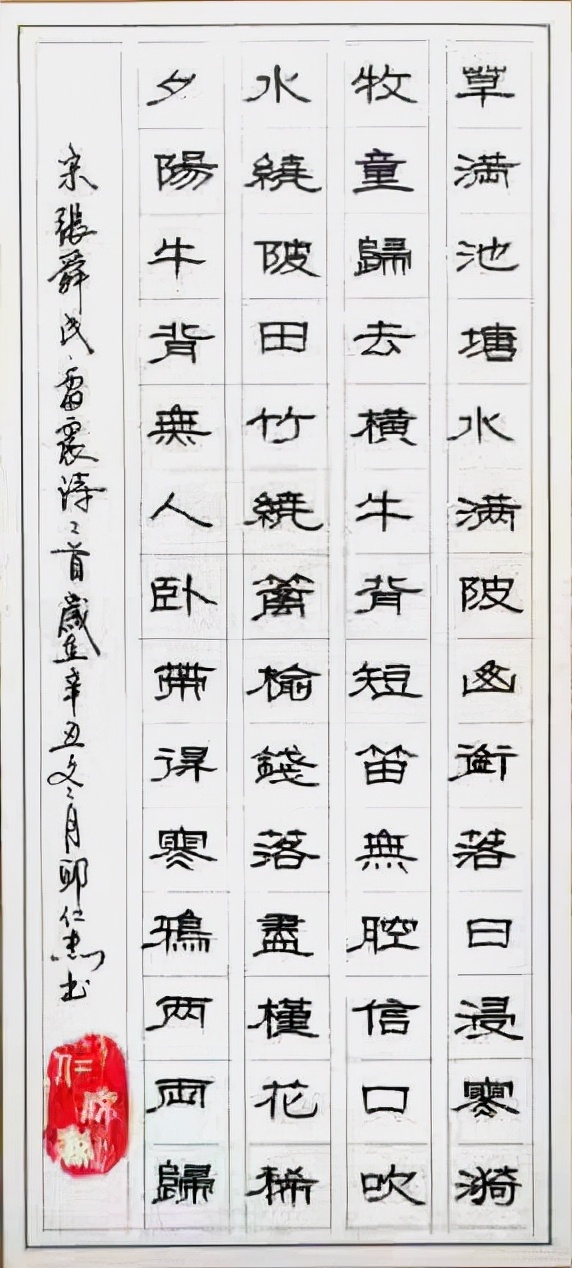 草満池塘水满陂山銜落日浸寒漪
牧童歸去橫牛背短笛無腔信口吹
水繞陂田竹繞籬榆錢落盡槿花稀
夕陽牛背無人卧帶得寒鴉两両歸
宋張舜民、雷震詩二首歲在辛丑冬月邱仁杰书